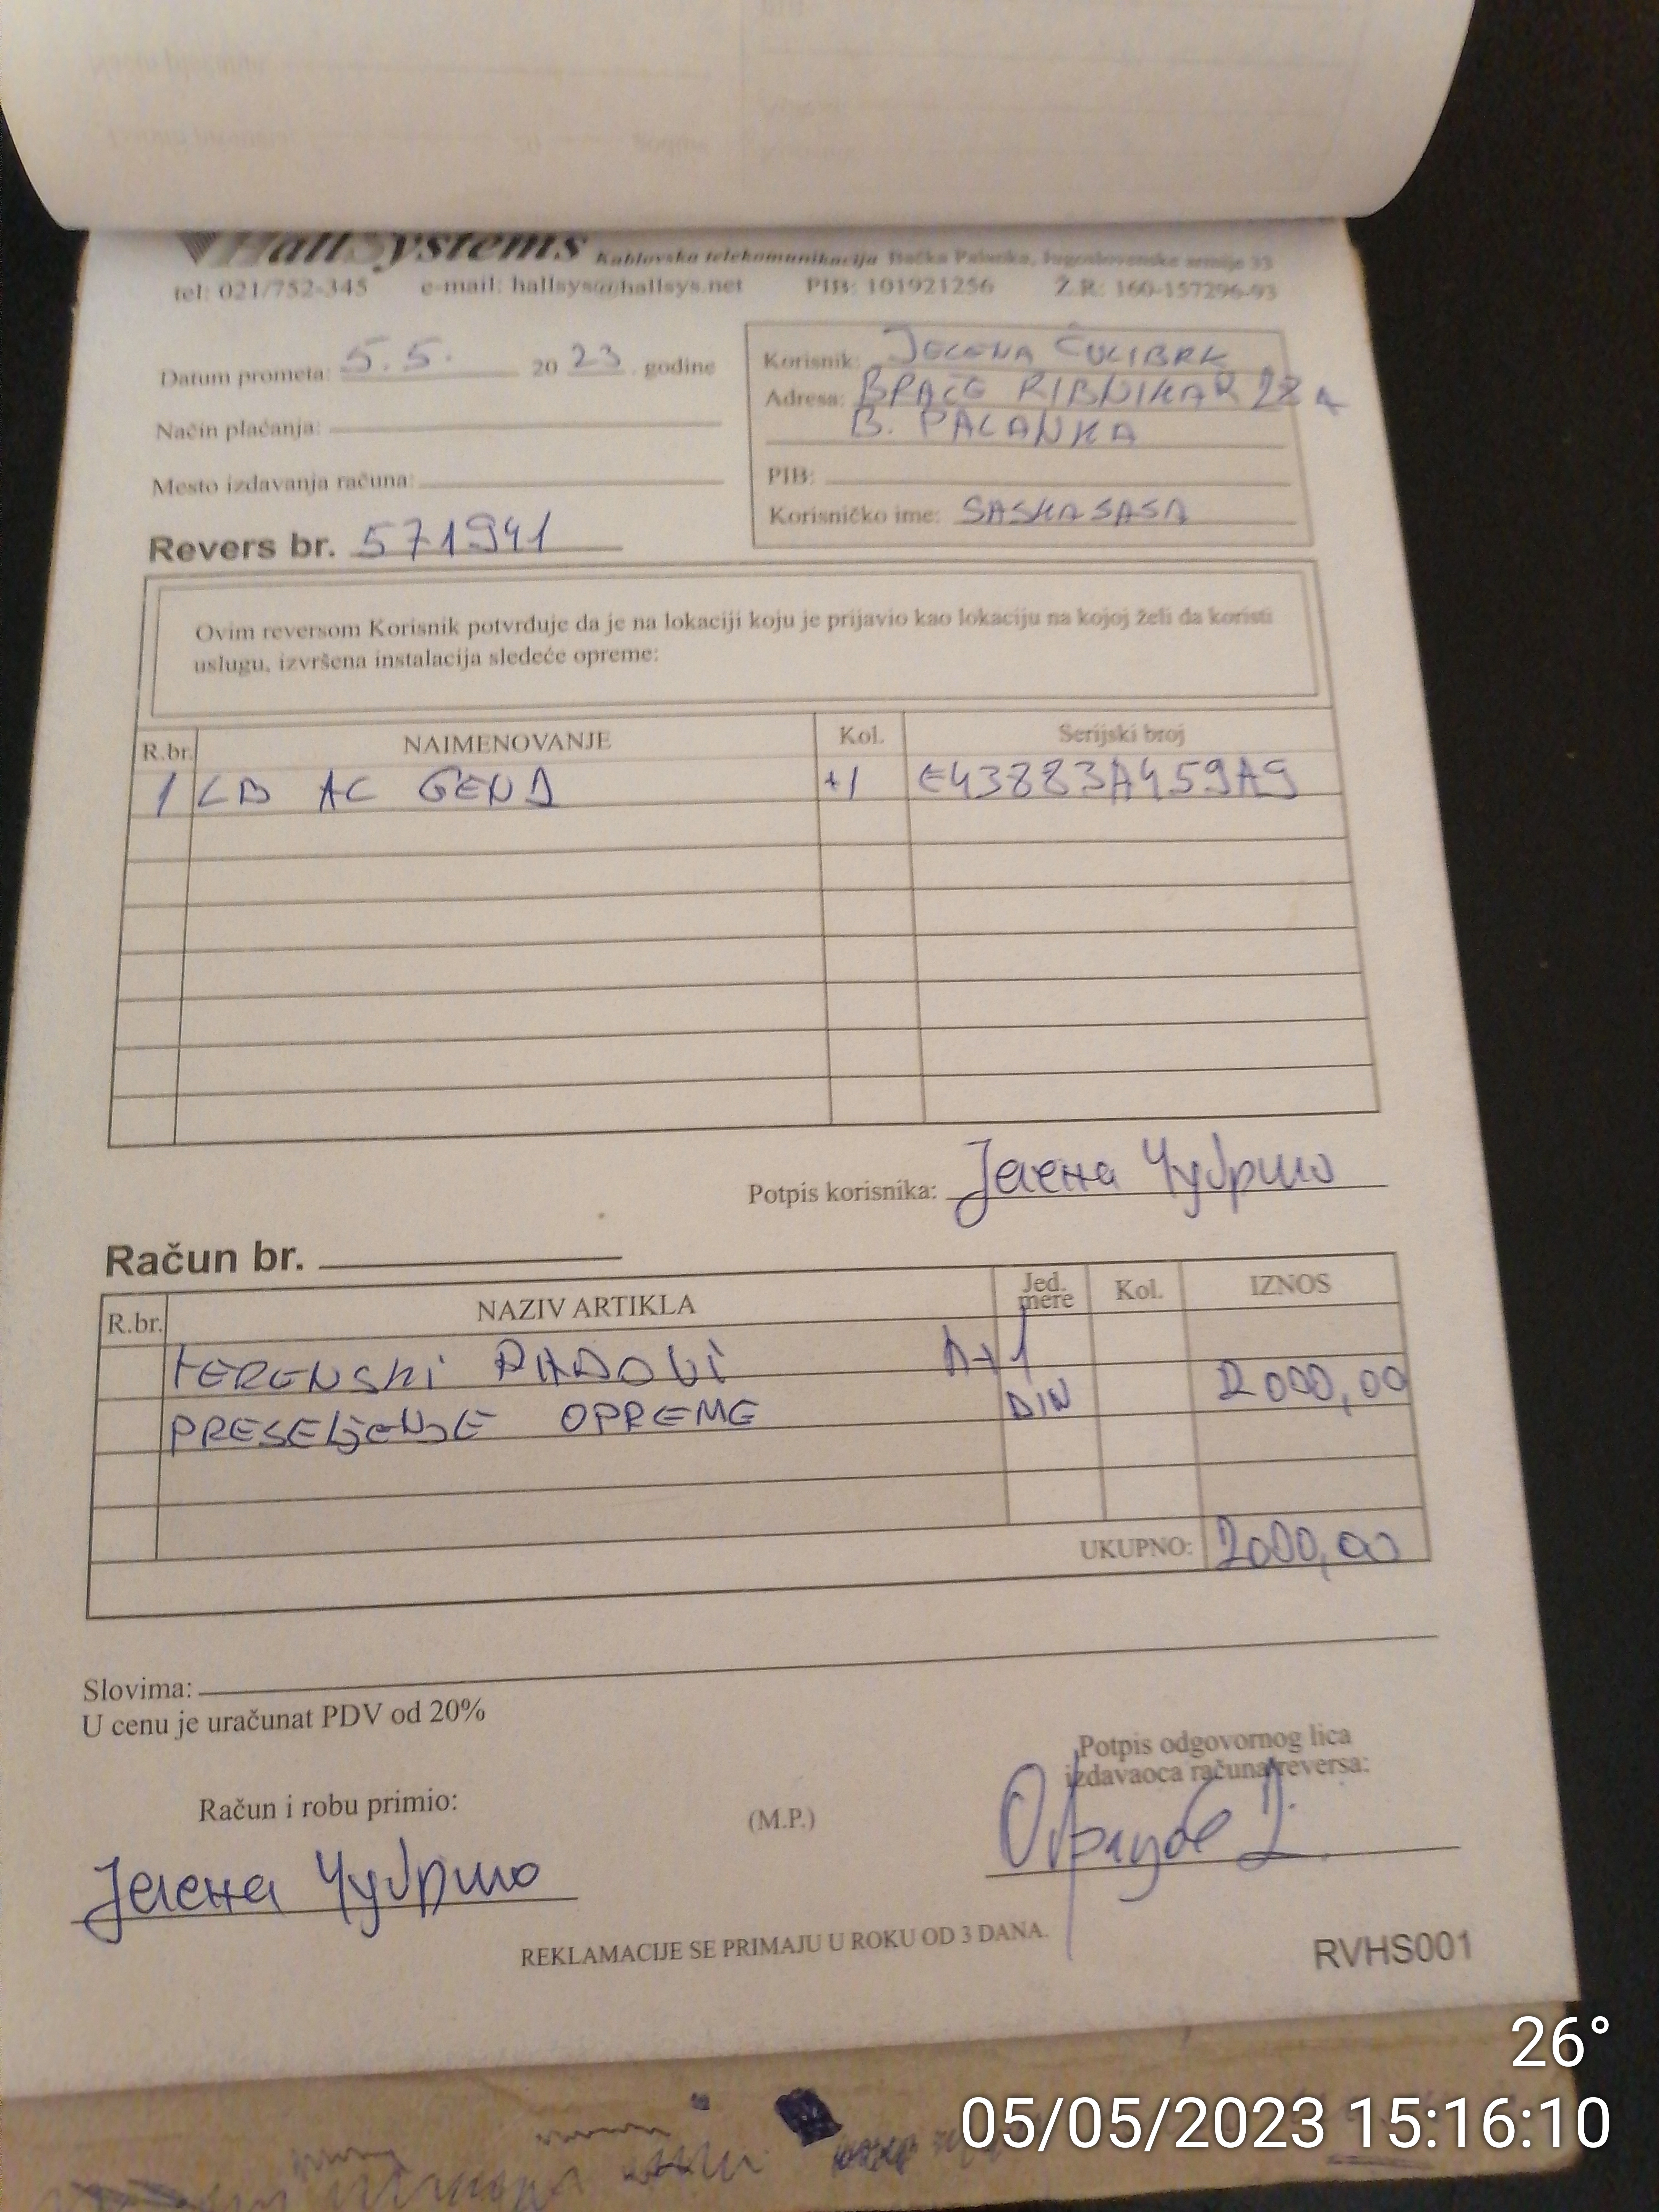 HallSystems Kablovska telekomunikacija Bačka Palanka, Jugoslovenske armije 33
tel: 021/752-345 e-mail: hallsys@hallsys.net PIB: 101921256 Ž.R: 160-157296-93
Datum prometa: 5.5. 20 23. godine
Način plaćanja:
Mesto izdavanja računa:
Revers br. 571941
Korisnik: JELENA ČULIBRK
Adresa: BRAĆE RIBNIKAR
B. PALANKA
PIB:
Korisničko ime: SASKASASA
Ovim reversom Korisnik potvrđuje da je na lokaciji koju je prijavio kao lokaciju na kojoj želi da koristi
uslugu, izvršena instalacija sledeće opreme:
R.br. NAIMENOVANJE Kol. Serijski broj
1 AC +1 E43883A459A9
Potpis korisnika: Јелена
Račun br.
R.br. NAZIV ARTIKLA Jed. mere Kol. IZNOS
TERENSKI RADOVI
PRESELJENJE OPREME DIN 2000,00
UKUPNO: 2000,00
Slovima:
U cenu je uračunat PDV od 20%
Potpis odgovornog lica
izdavaoca računa/reversa:
Račun i robu primio:
(M.P.)
Јелена
REKLAMACIJE SE PRIMAJU U ROKU OD 3 DANA.
RVHS001
26°
05/05/2023 15:16:10